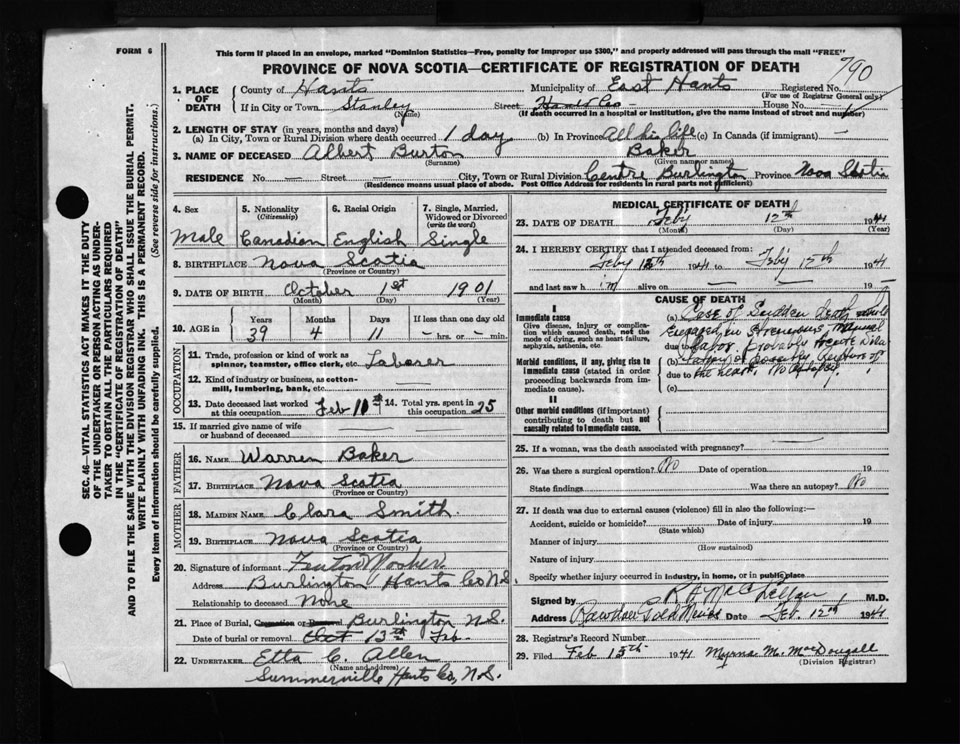 FORM 6
This form if placed in an envelope, marked "Dominion Statistics—Free, penalty for improper use $300," and properly addressed will pass through the mail "FREE"
PROVINCE OF NOVA SCOTIA—CERTIFICATE OF REGISTRATION OF DEATH
790
1. PLACE OF DEATH County of Hants Municipality of East Hants Registered No.
(For use of Registrar General only)
If in City or Town Stanley (Name) Street Hants Co — House No.
(If death occurred in a hospital or institution, give the name instead of street and number)
2. LENGTH OF STAY (in years, months and days)
(a) In City, Town or Rural Division where death occurred 1 day (b) In Province All his life (c) In Canada (if immigrant) —
3. NAME OF DECEASED Albert Burton Baker
(Surname) (Given name or names)
RESIDENCE No. — Street — City, Town or Rural Division Centre Burlington Province Nova Scotia
(Residence means usual place of abode. Post Office Address for residents in rural parts not sufficient)
4. Sex Male
5. Nationality (Citizenship) Canadian
6. Racial Origin English
7. Single, Married, Widowed or Divorced (write the word) Single
8. BIRTHPLACE Nova Scotia
(Province or Country)
9. DATE OF BIRTH October 1st 1901
(Month) (Day) (Year)
10. AGE in Years Months Days If less than one day old
39 4 11 — hrs. or — min.
OCCUPATION
11. Trade, profession or kind of work as spinner, teamster, office clerk, etc. Laborer
12. Kind of industry or business, as cotton-mill, lumbering, bank, etc.
13. Date deceased last worked at this occupation Feb 11th
14. Total yrs. spent in this occupation 25
15. If married give name of wife or husband of deceased
FATHER
16. NAME Warren Baker
17. BIRTHPLACE Nova Scotia
(Province or Country)
MOTHER
18. MAIDEN NAME Clara Smith.
19. BIRTHPLACE Nova Scotia
(Province or Country)
20. Signature of informant Fenton Mosher.
Address Burlington Hants Co N.S.
Relationship to deceased None
21. Place of Burial, Cremation or Removal Burlington N.S.
Date of burial or removal Oct 13th Feb.
22. UNDERTAKER Etta C. Allen
(Name and address)
Summerville Hants Co, N.S.
MEDICAL CERTIFICATE OF DEATH
23. DATE OF DEATH Feby 12th 1941
(Month) (Day) (Year)
24. I HEREBY CERTIFY that I attended deceased from:
Feby 1941 to Feby 1941
and last saw h im alive on 19
CAUSE OF DEATH
I
Immediate cause
Give disease, injury or complication which caused death, not the mode of dying, such as heart failure, asphyxia, asthenia, etc.
Morbid conditions, if any, giving rise to immediate cause (stated in order proceeding backwards from immediate cause).
II
Other morbid conditions (if important) contributing to death but not causally related to immediate cause.
(a) Case of Sudden death while
Engaged in Strenuous Manual
due to labor, probably Acute Dila
(b) tation or possibly Rupture of
due to the heart. No Autopsy.
(c)
25. If a woman, was the death associated with pregnancy?
26. Was there a surgical operation? No Date of operation 19
State findings Was there an autopsy? No
27. If death was due to external causes (violence) fill in also the following:—
Accident, suicide or homicide? Date of injury 19
(State which)
Manner of injury
(How sustained)
Nature of injury
Specify whether injury occurred in industry, in home, or in public place
Signed by M.D.
Address Rawdon Gold Mines Date Feb. 12th 1941
28. Registrar's Record Number
29. Filed Feb 15th 1941 Myrna M. MacDougall
(Division Registrar)
SEC. 46—VITAL STATISTICS ACT MAKES IT THE DUTY
OF THE UNDERTAKER OR PERSON ACTING AS UNDER-
TAKER TO OBTAIN ALL THE PARTICULARS REQUIRED
IN THE "CERTIFICATE OF REGISTRATION OF DEATH"
AND TO FILE THE SAME WITH THE DIVISION REGISTRAR WHO SHALL ISSUE THE BURIAL PERMIT.
WRITE PLAINLY WITH UNFADING INK. THIS IS A PERMANENT RECORD.
Every item of information should be carefully supplied. (See reverse side for instructions.)